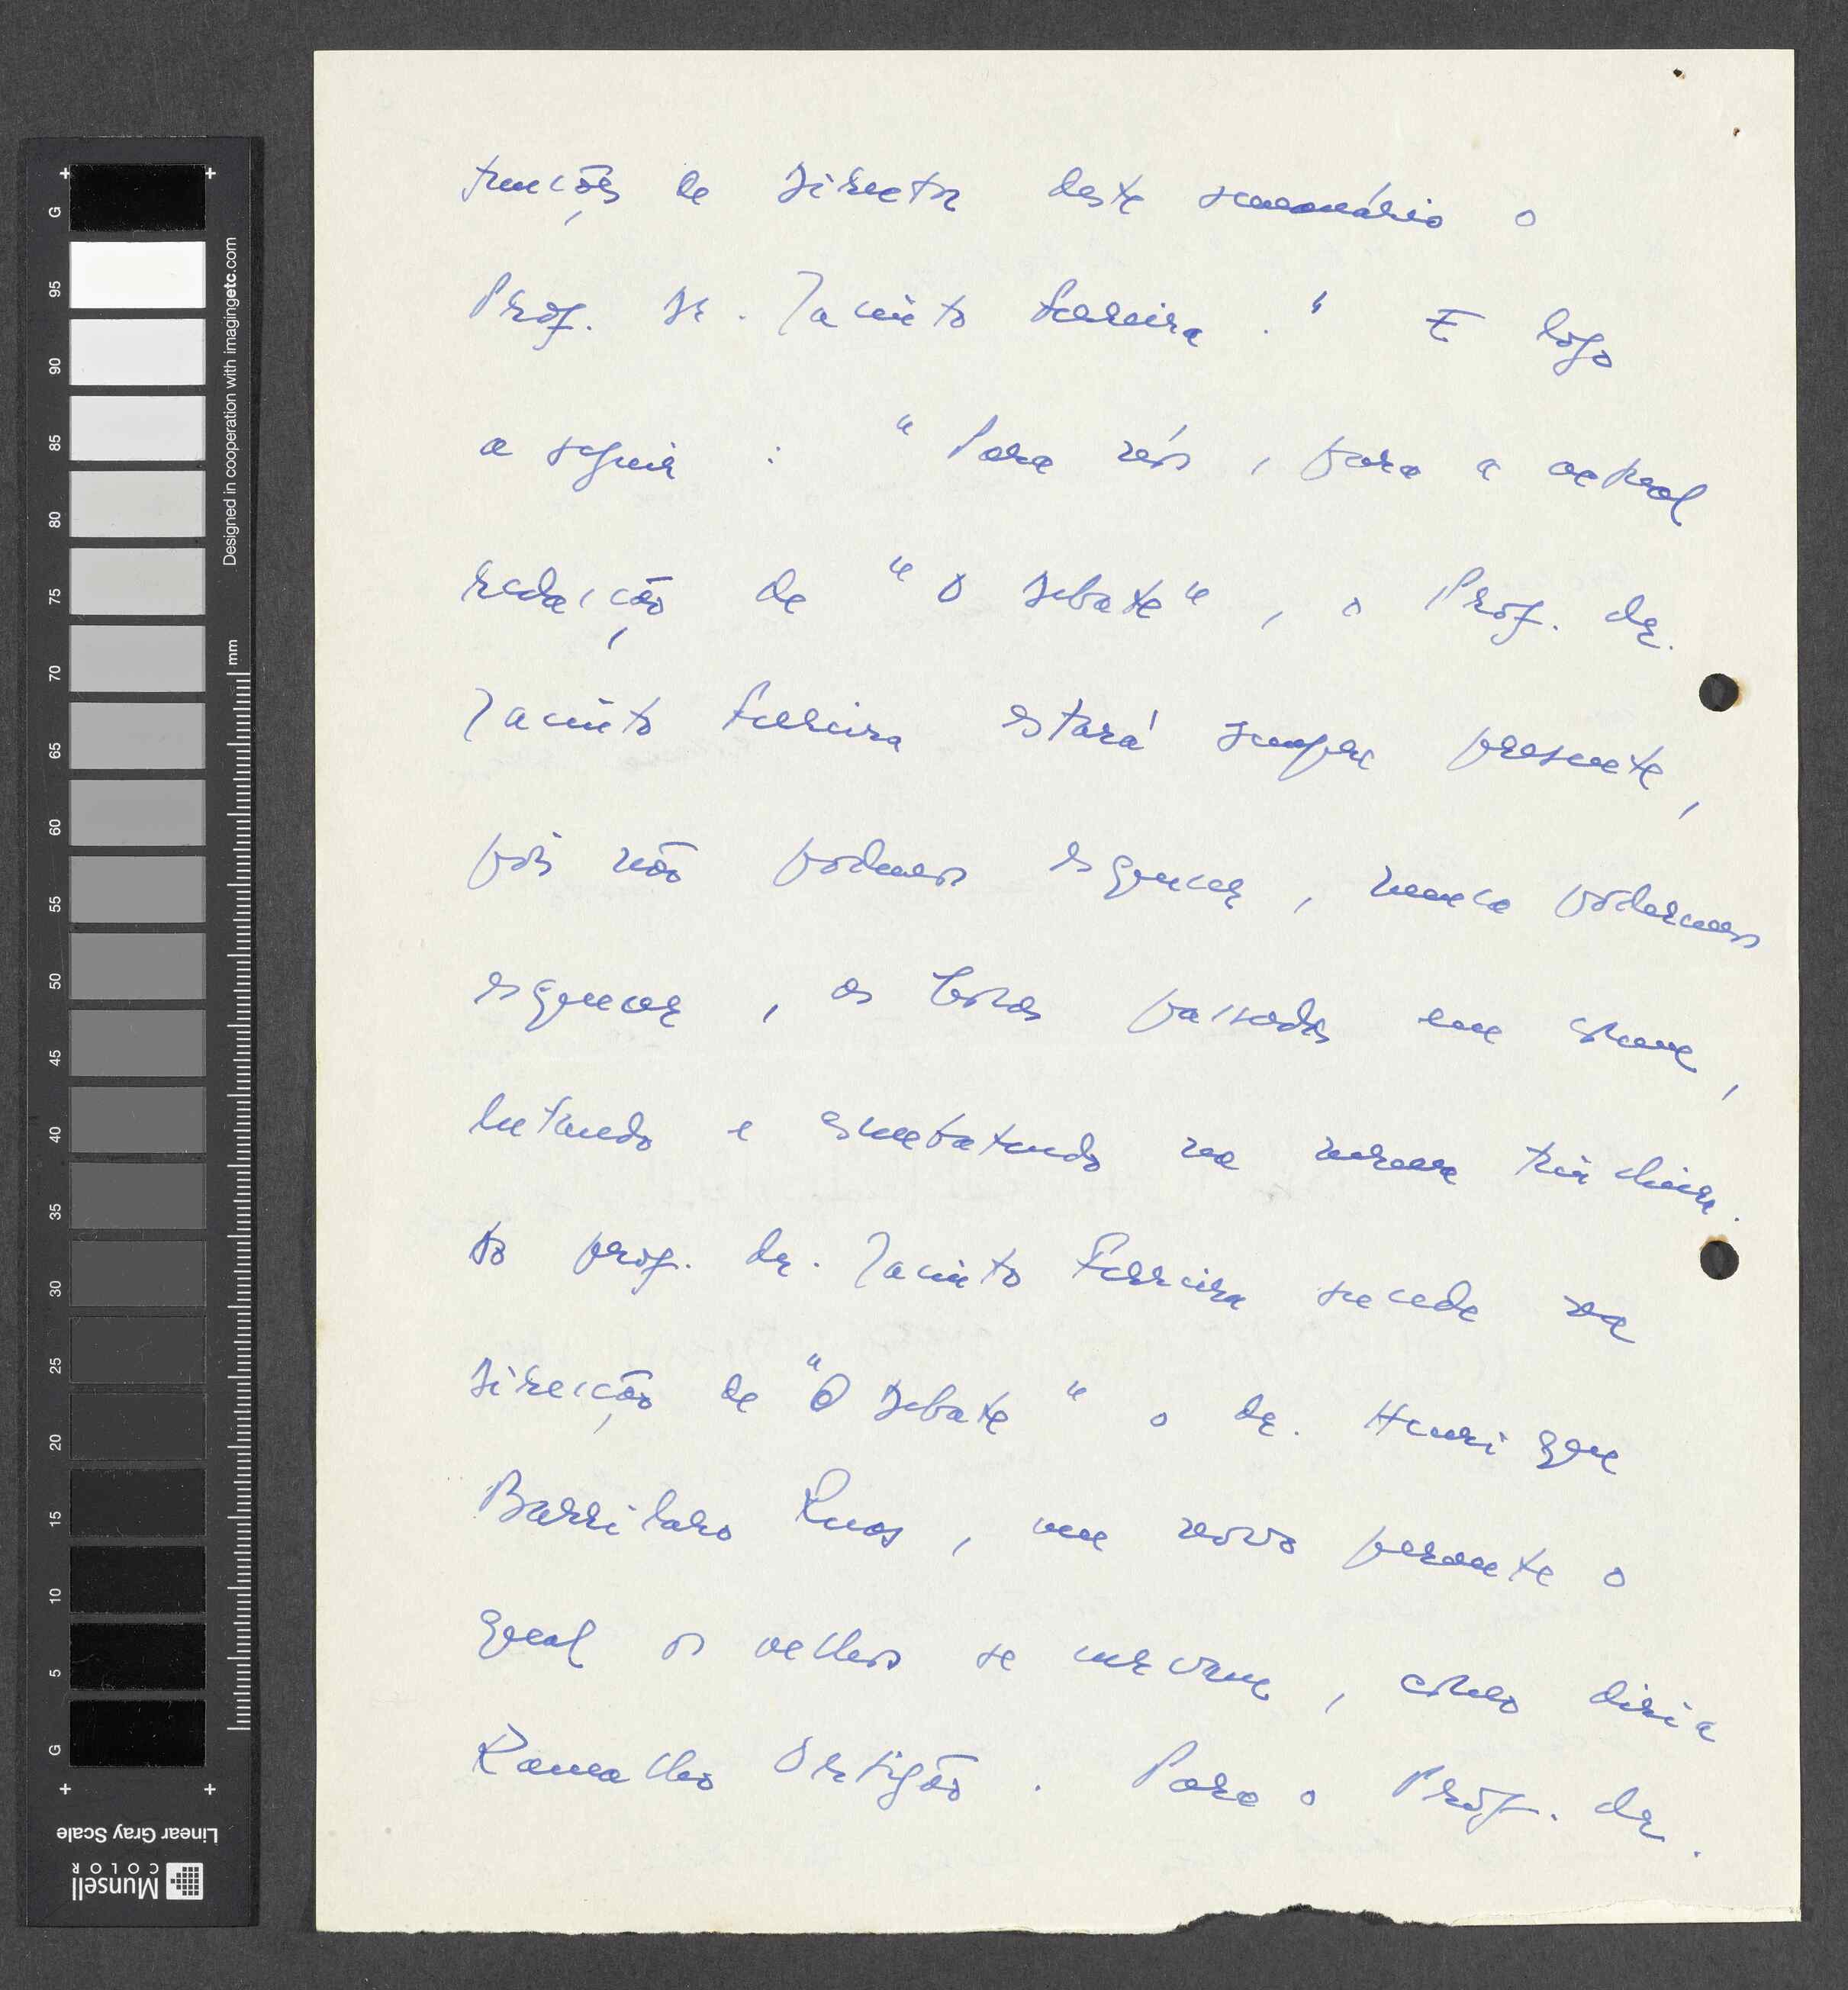 funções de Director deste semanário o
Prof. Dr. Jacinto Ferreira." E logo
a seguir : " Para nós, para a actual
redacção de "O Debate", o Prof. dr.
Jacinto Ferreira estará sempre presente,
pois não podemos esquecer, nunca poderemos
esquecer, as horas passadas em comum,
lutando e combatendo na mesma trincheira.
Ao prof. dr. Jacinto Ferreira sucede na
direcção de "O Debate" o dr. Henrique
Barrilaro Ruas, um novo perante o
qual os velhos se curvam, como diria
Ramalho Ortigão. Para o Prof. dr.
Designed in cooperation with imagingetc.com
mm
G 95 90 85 80 75 70 65 60 55 50 45 40 35 30 25 20 15 10 5 G
Linear Gray Scale
Munsell
COLOR